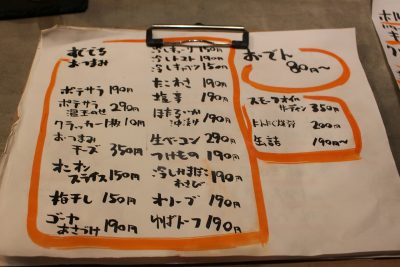 おつまみ
ポテサラ 190円
ポテサラ 290円
温玉のせ
クラッカー1枚 10円
おつまみ
チーズ 350円
オニオン
スライス 150円
梅干し 150円
ゴーヤ
あさづけ 190円
冷しキューリ 150円
冷しトマト 190円
冷しキャベツ 150円
たこわさ 190円
塩辛 190円
ほたるいか
沖漬け 190円
生ベーコン 290円
つけもの 190円
冷しかまぼこ
わさび 190円
オリーブ 190円
ゆばトーフ 190円
おでん
80円〜
スモークオイル
サーディン 350円
200円
缶詰 190円〜